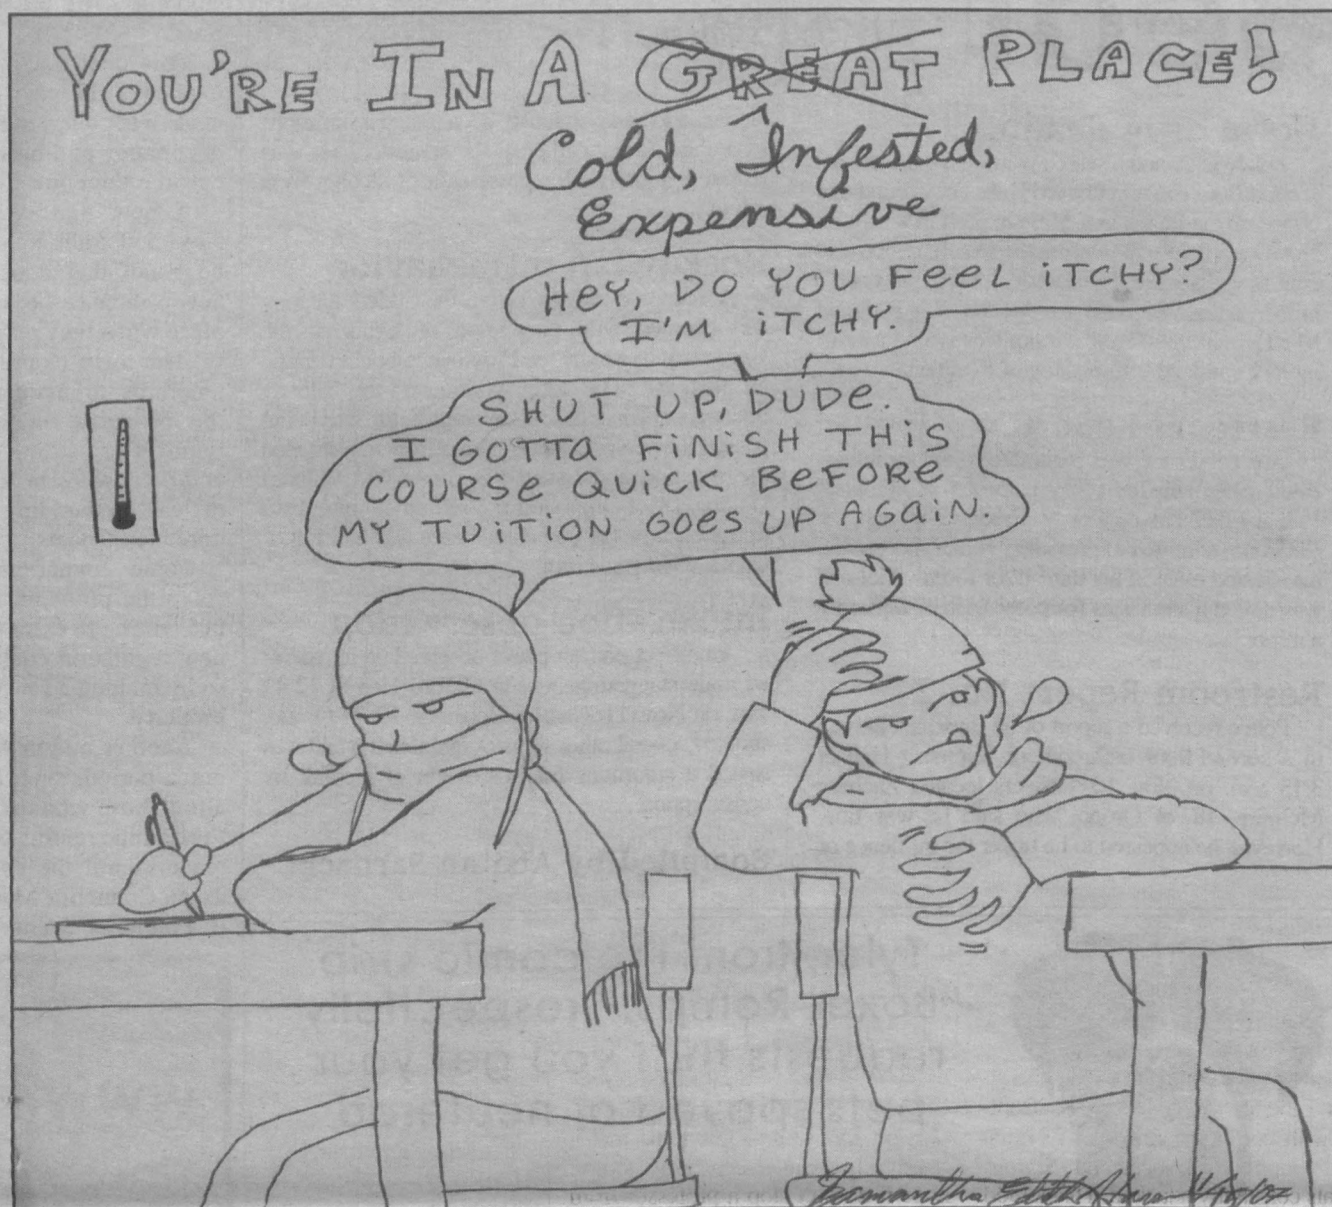 YOU'RE IN A GREAT PLACE!
Cold, Infested,
Expensive
HEY, DO YOU FEEL ITCHY?
I'M ITCHY.
SHUT UP, DUDE.
I GOTTA FINISH THIS
COURSE QUICK BEFORE
MY TUITION GOES UP AGAIN.
Samantha Edith